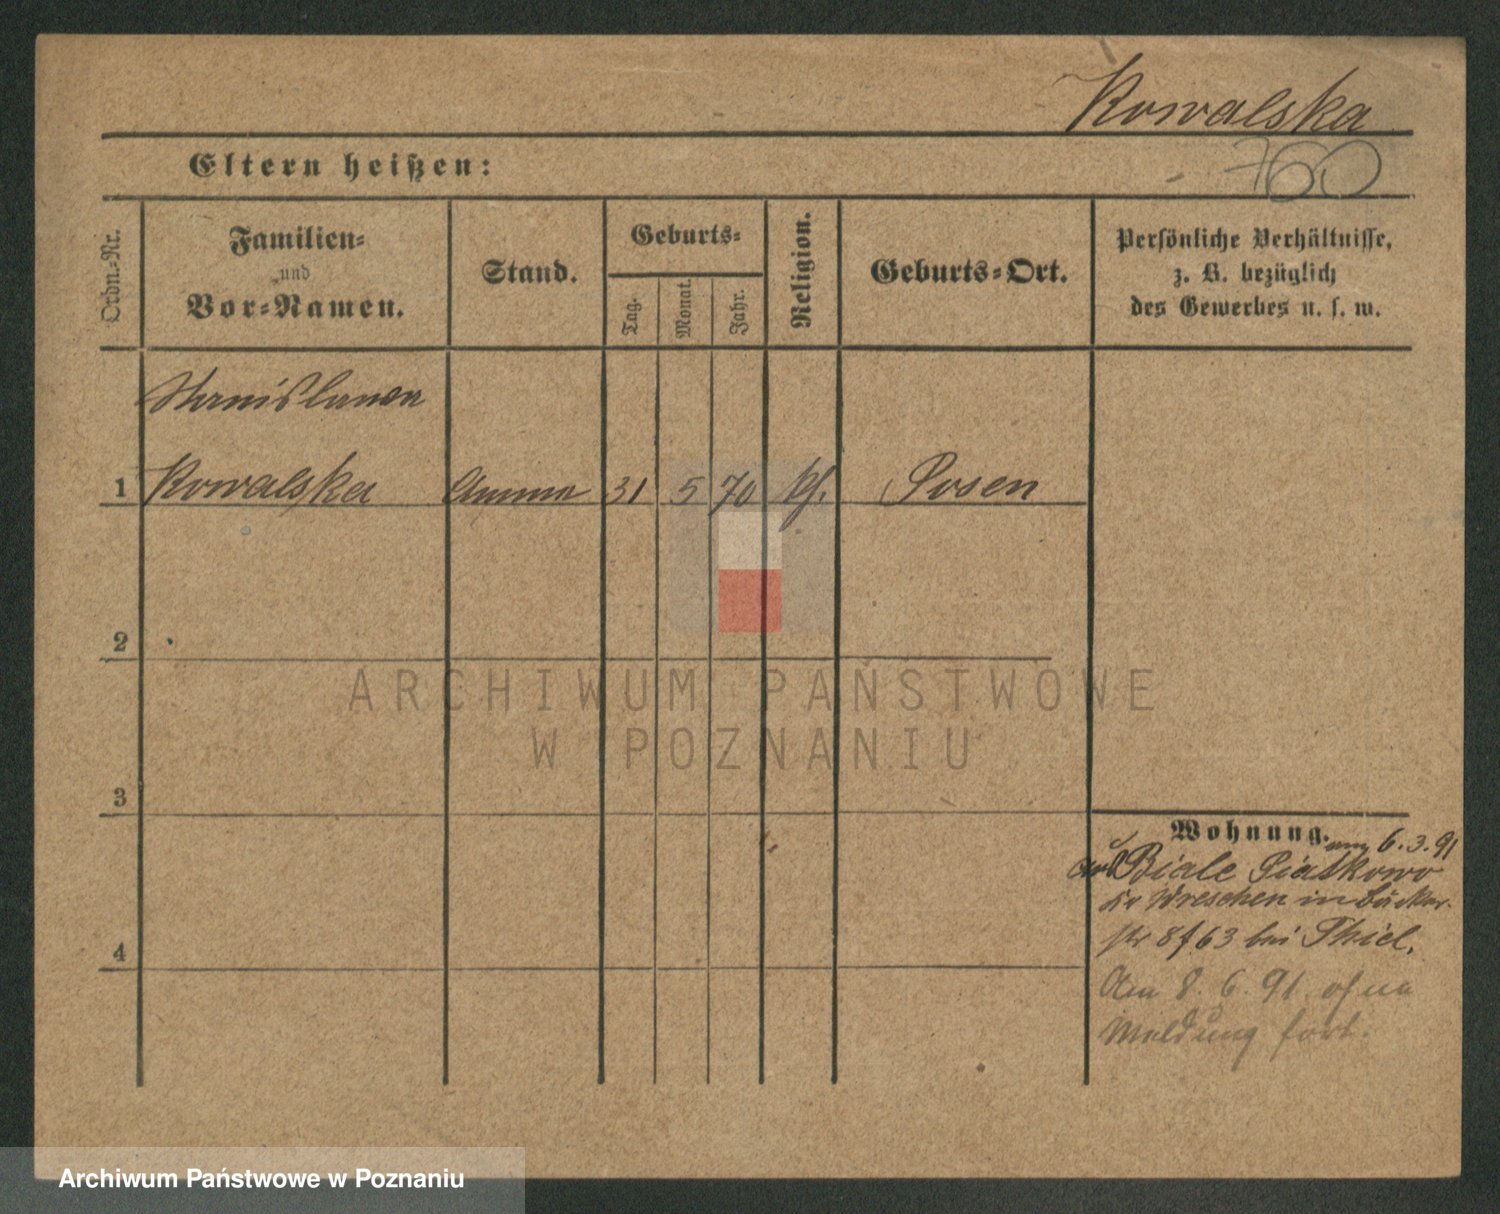 Kowalska
Eltern heißen:
760
Ordn.-Nr.
Familien-
und
Vor-Namen.
Stand.
Geburts-
Tag.
Monat.
Jahr.
Religion.
Geburts-Ort.
Persönliche Verhältnisse,
z. B. bezüglich
des Gewerbes u. s. w.
Stanislawa
1 Kowalska Amme 31 5 70 kh. Posen
2
3
4
Wohnung. am 6.3.91
aus Biale Piatkowo
Kr Wreschen in Bäcker-
str 8 f 63 bei Thiel.
Am 8. 6. 91. ohne
Meldung fort.
ARCHIWUM PAŃSTWOWE
W POZNANIU
Archiwum Państwowe w Poznaniu